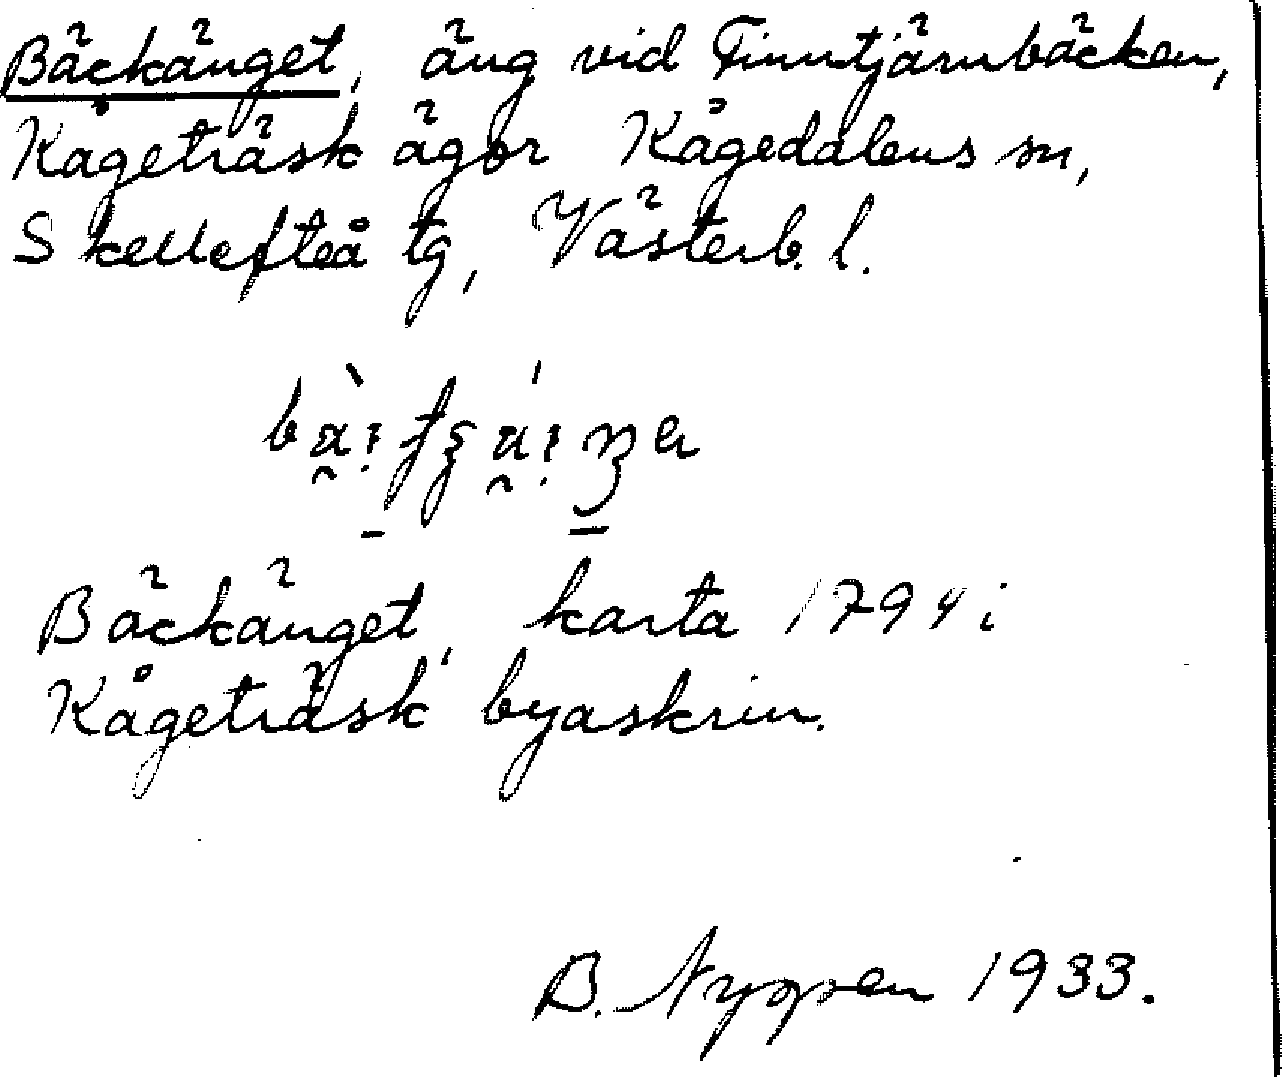 Bäckänget, äng vid Finntjärnbäcken,
Kågeträsk ägor Kågedalens sn,
Skellefteå tg, Västerb. l.
Bäckänget, karta 1794 i
Kågeträsk byaskrin.
B. Nyppen 1933.